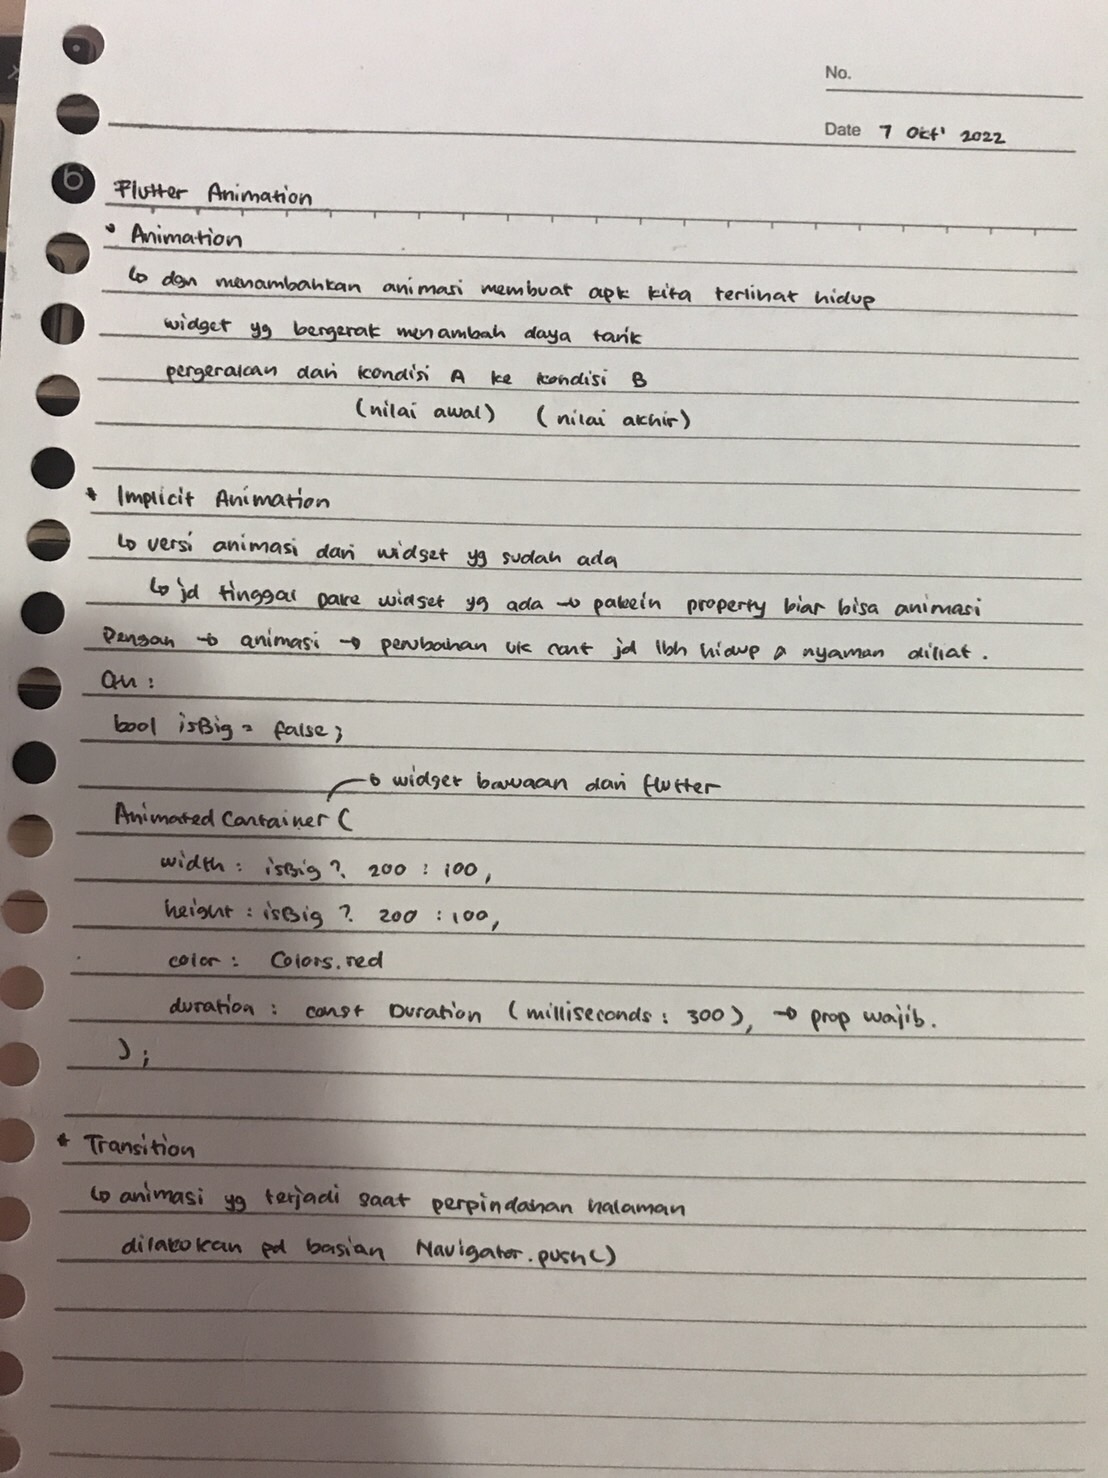 No.
Date 7 Okt' 2022
Flutter Animation
• Animation
↳ dgn menambahkan animasi membuat apk kita terlihat hidup
widget yg bergerak menambah daya tarik
pergerakan dari kondisi A ke kondisi B
(nilai awal) (nilai akhir)
* Implicit Animation
↳ versi animasi dari widget yg sudah ada
↳ jd tinggal pake widget yg ada → pakein property biar bisa animasi
Dengan → animasi → perubahan uk cont jd lbh hidup & nyaman diliat.
bool isBig = false;
→ widget bawaan dari flutter
Animated Container (
width : isBig ? 200 : 100,
height : isBig ? 200 : 100,
color : Colors.red
duration : const Duration (milliseconds : 300), → prop wajib.
);
* Transition
↳ animasi yg terjadi saat perpindahan halaman
dilakukan pd bagian Navigator.push()